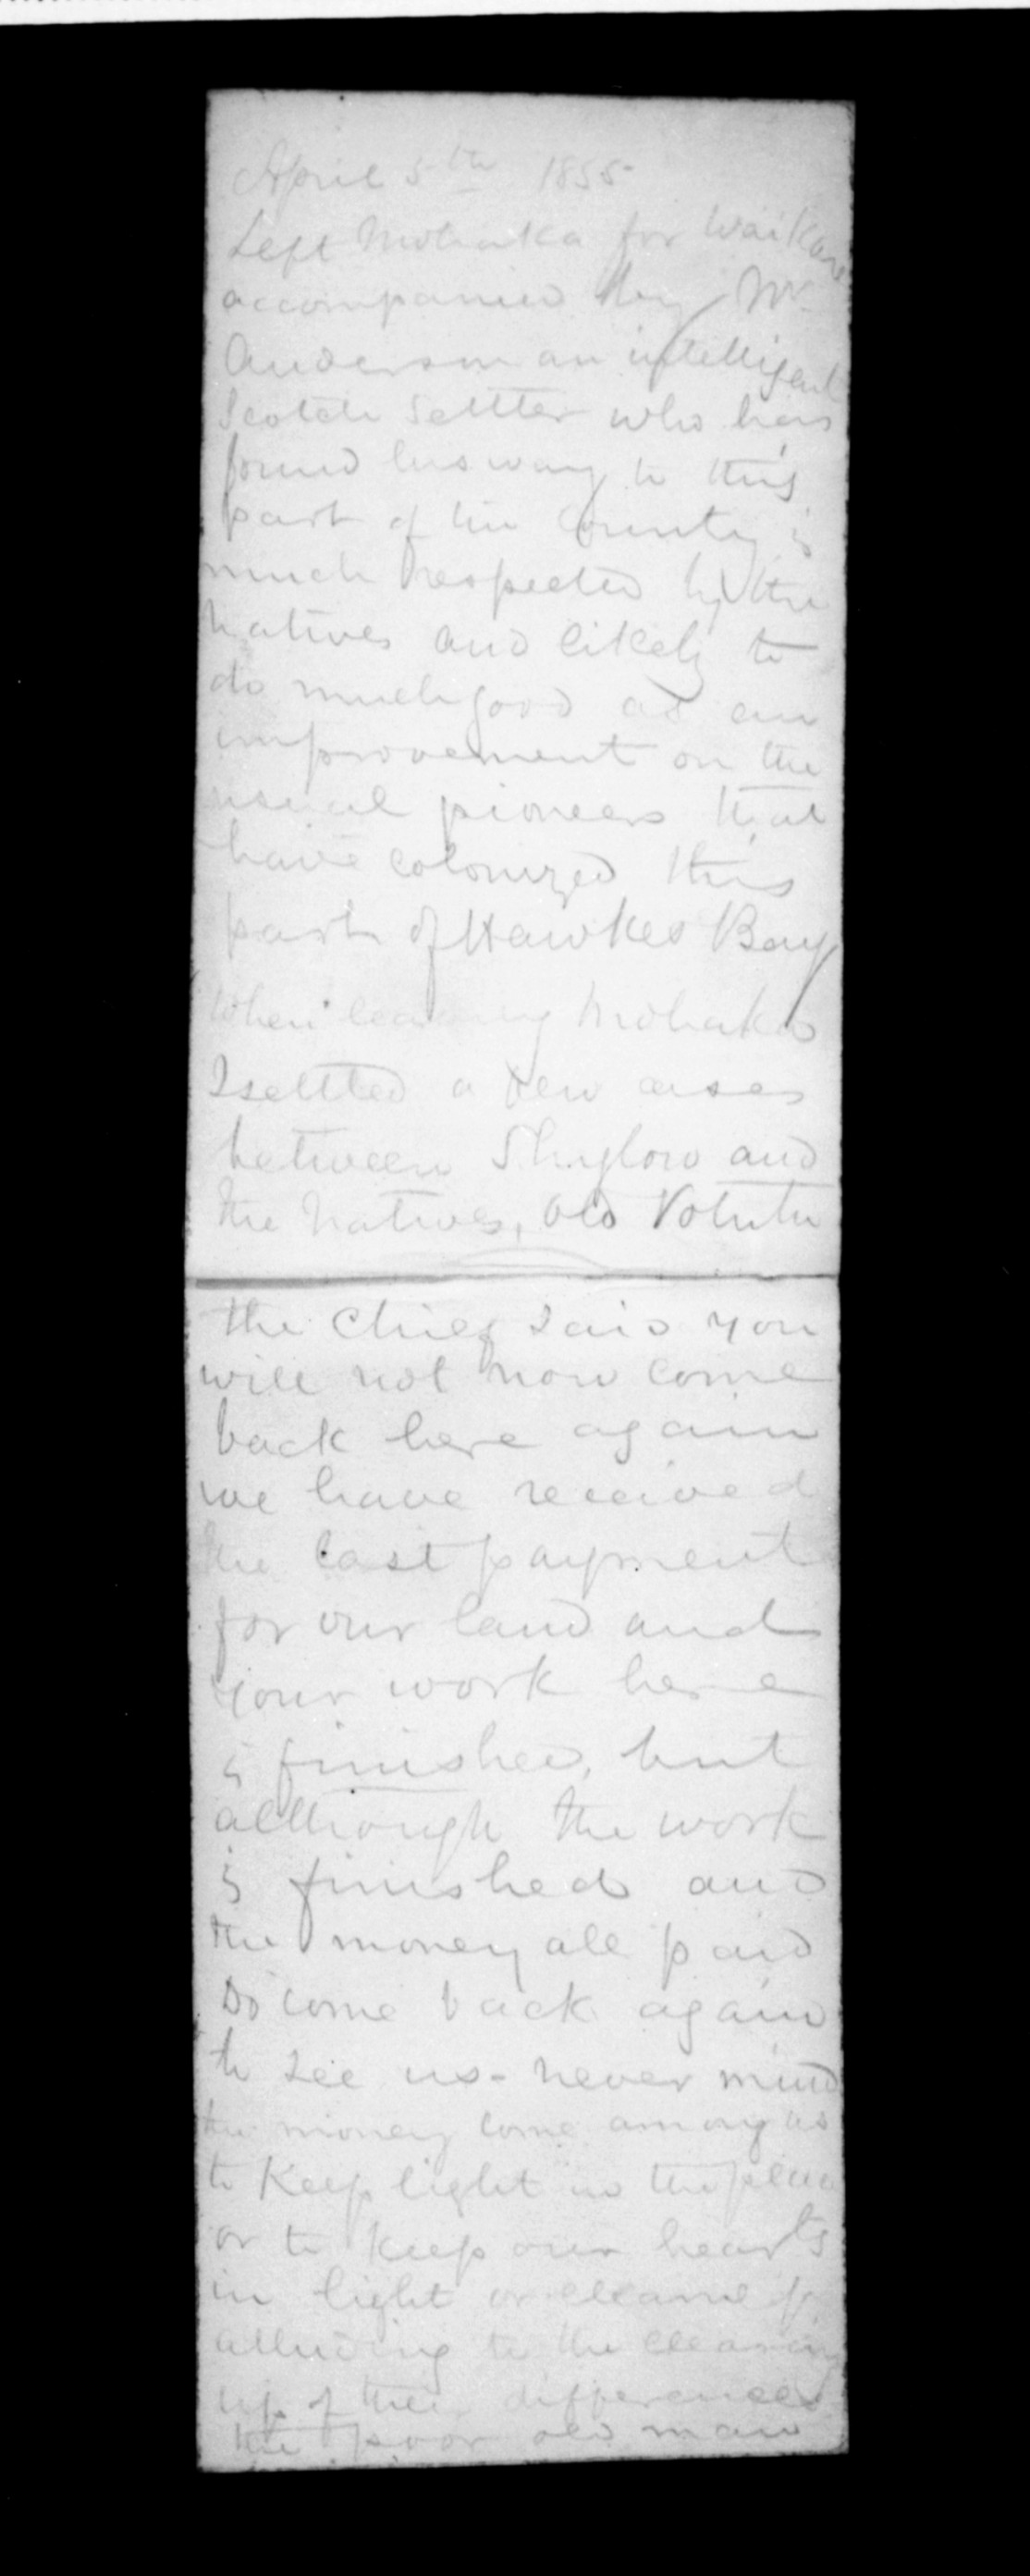 April 5th 1855
Left Mohaka for Waikare
accompanied by Mr
Anderson an intelligent
Scotch settler who has
found his way to this
part of the country is
much respected by the
natives and likely to
do much good as an
improvement on the
usual pioneers that
have colonized this
part of Hawkes Bay
When leaving Mohaka
I settled a few cases
between and
the Natives, Old
the Chief said you
will not now come
back here again
we have received
the last payment
for our land and
your work here
is finished, but
although the work
is finished and
the money all paid
Do come back again
to see us - never mind
the money come among us
to Keep light in the place
or to keep our hearts
in light or
alluding to the clearing
up of their differences
the poor old man